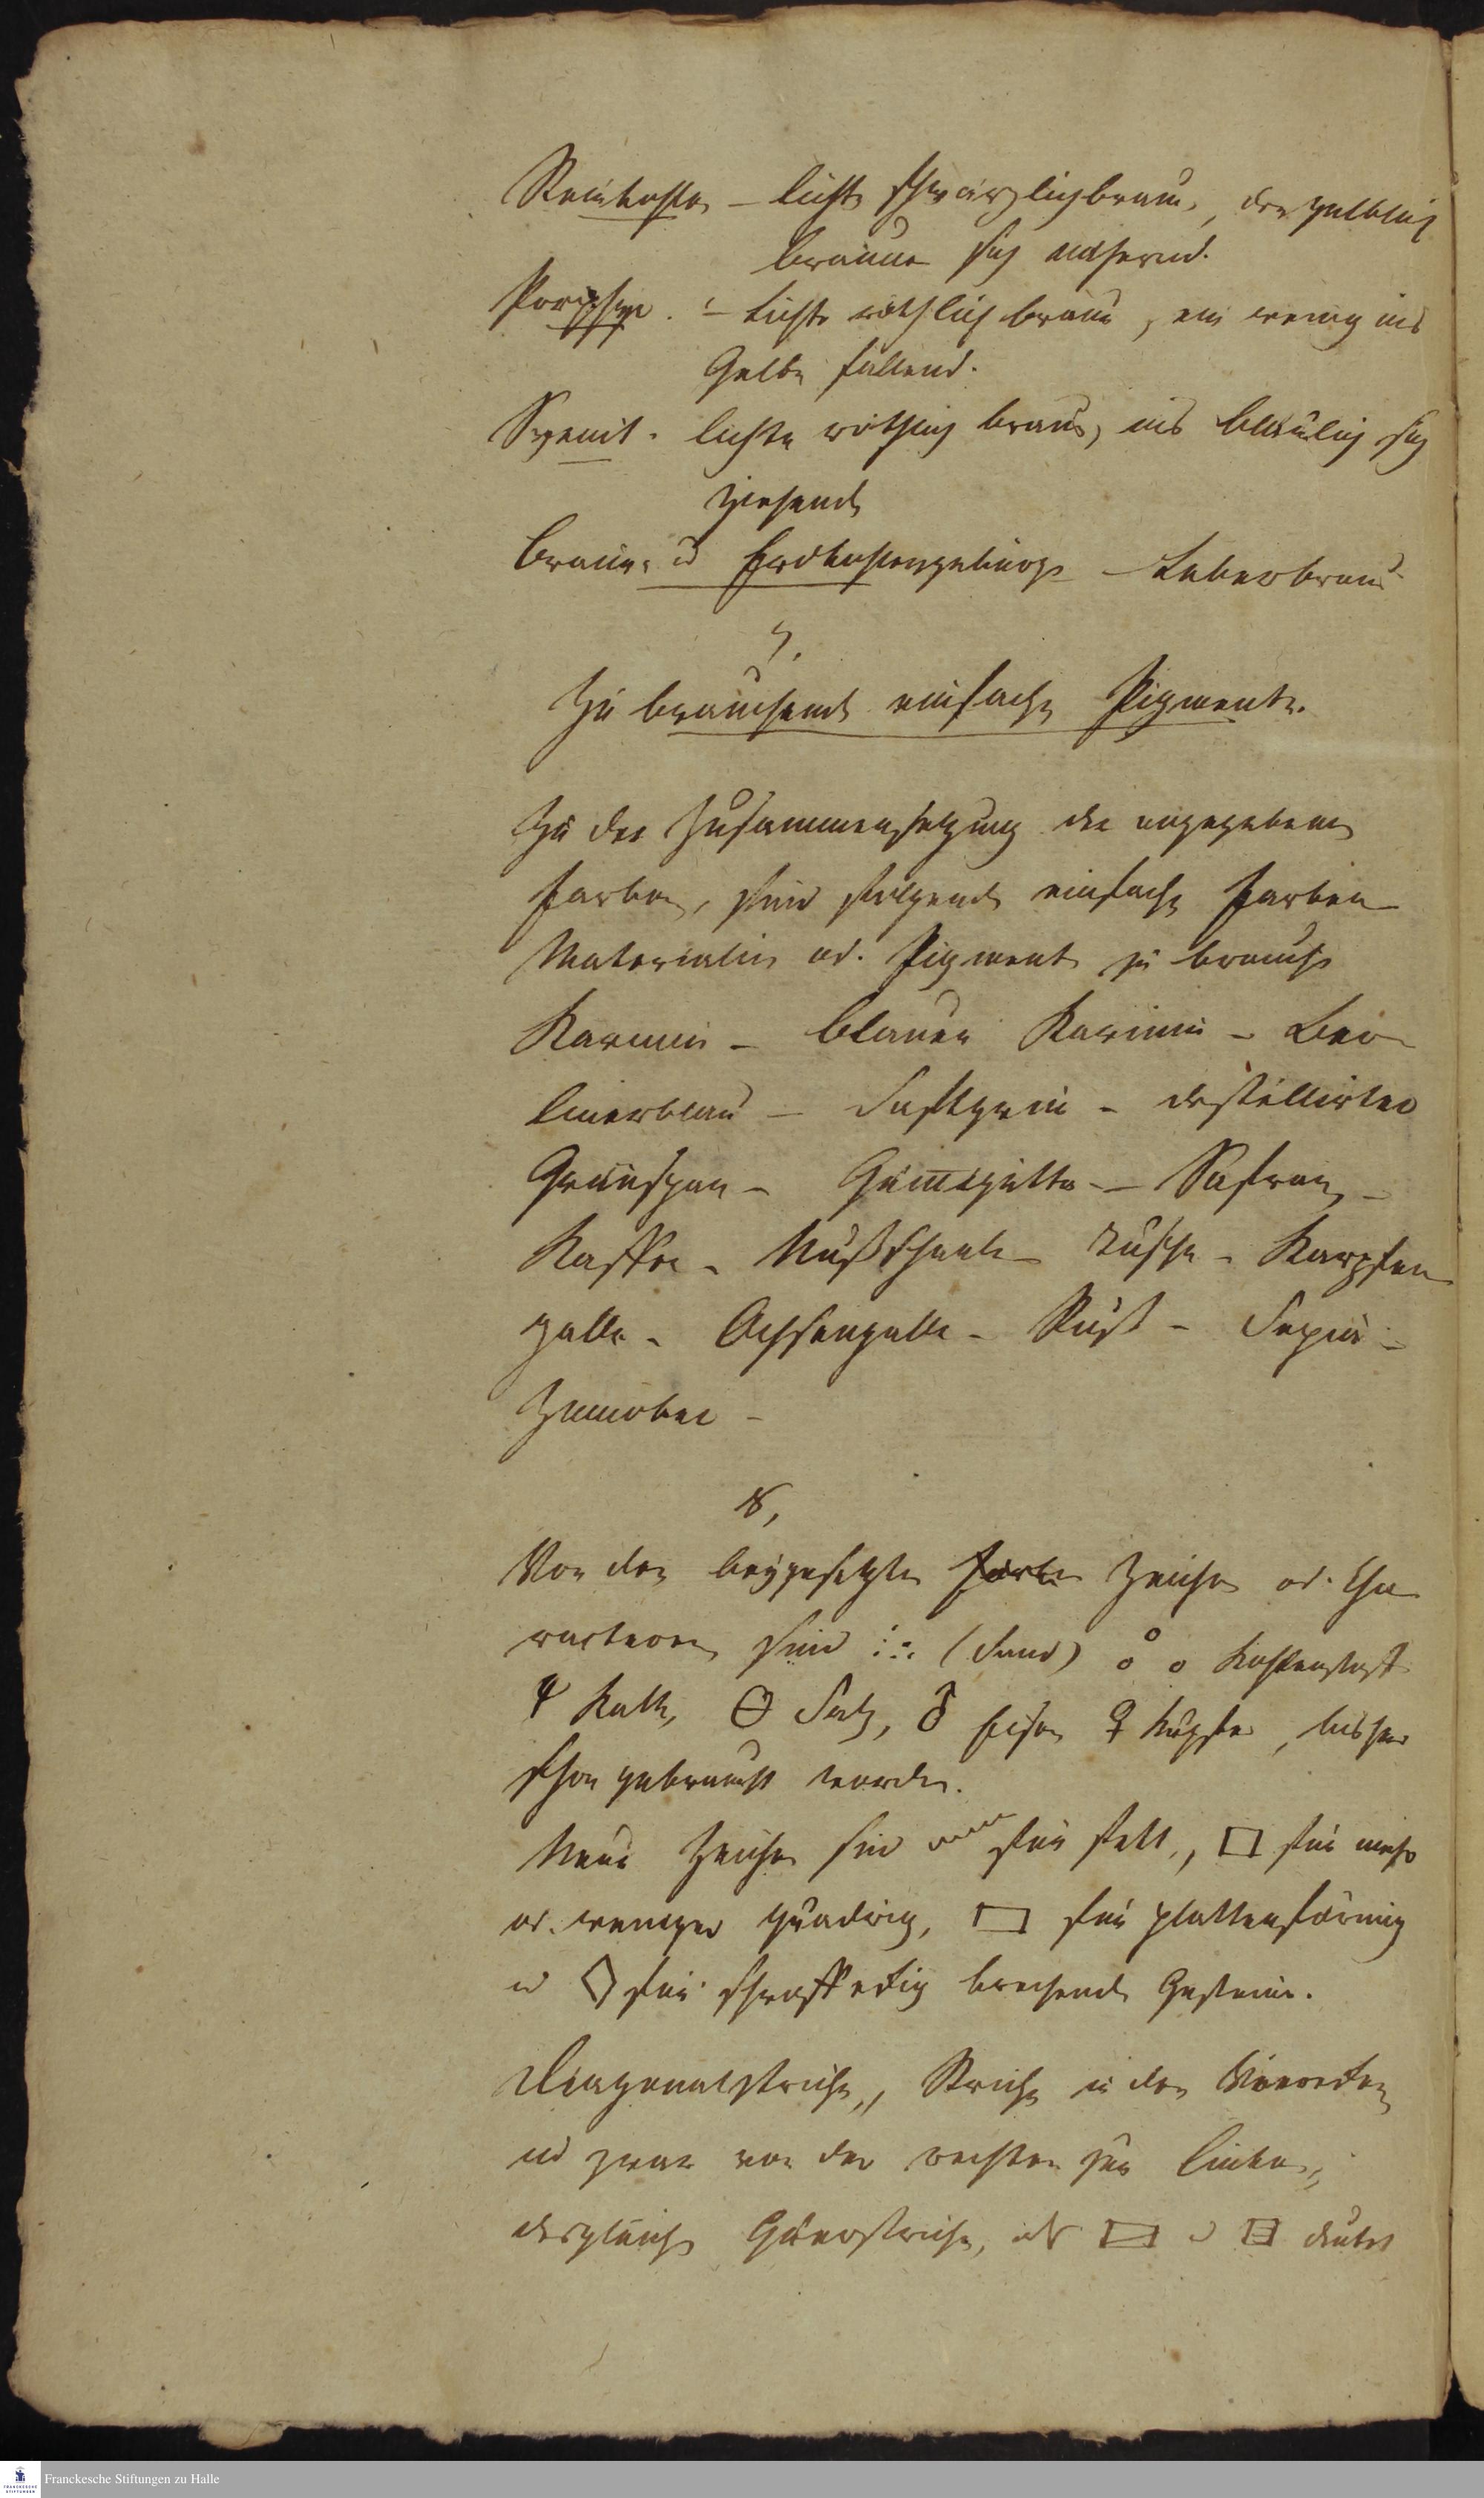 Steinkohle – licht schwärzlichbraun, dem gelblich
braune sich nähernd.
Porphyr. – Lichte röthlich braun, ein wenig ins
Gelbe fallend.
Syenit. lichte röthlich braun, ins bläulich sich
ziehend
Braun- u Erdkohlengebirge – Leberbraun
7.
Zu brauchende einfache Pigmente.
Zu der Zusammensetzung der angegebenen
Farben, sind folgende einfache Farben
Materialien od. Pigmente zu brauchen
Karmin – blauer Karmin – Ber
linerblau – Saftgrün – destillirter
Grünspan – Gum̅igutta – Safran –
Kaffee – Nußschaale – Tusche – Karpfen
galle – Ochsengalle – Ruß – Sepia –
Zinnober –
8,
Von den beygesetzten Farben Zeichen od. Cha
racteren sind (Sand) Kohlenstoff
Kalk, Salz, ♂ Eisen ♀ Kupfer, bisher
schon gebraucht worden.
Neue Zeichen sind für Fett, □ für mehr
od. weniger quadrig, ▭ für plattenförmig
u ◊ für schroffedig brechende Gesteine.
Diagonalstriche, Striche in den Vierecken
und zwar von der rechten zur linken,
desgleichen Querstriche, als ▭ u ⊟ deutet